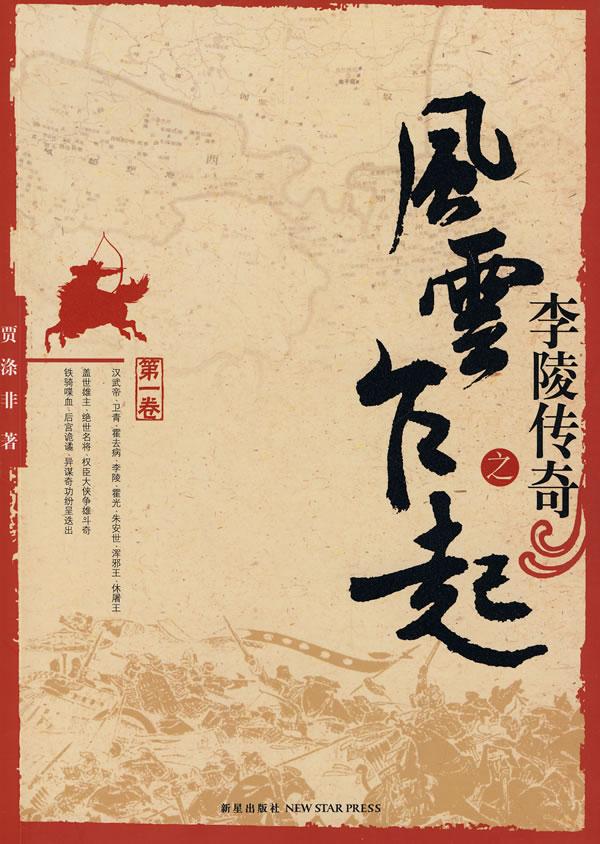 風雲乍起
之
李陵传奇
第一卷
汉武帝·卫青·霍去病·李陵·霍光·朱安世·浑邪王·休屠王
盖世雄主·绝世名将·权臣大侠争雄斗奇
铁骑喋血·后宫诡谲·异谋奇功纷呈迭出
贾涤非 著
新星出版社 NEW STAR PRESS